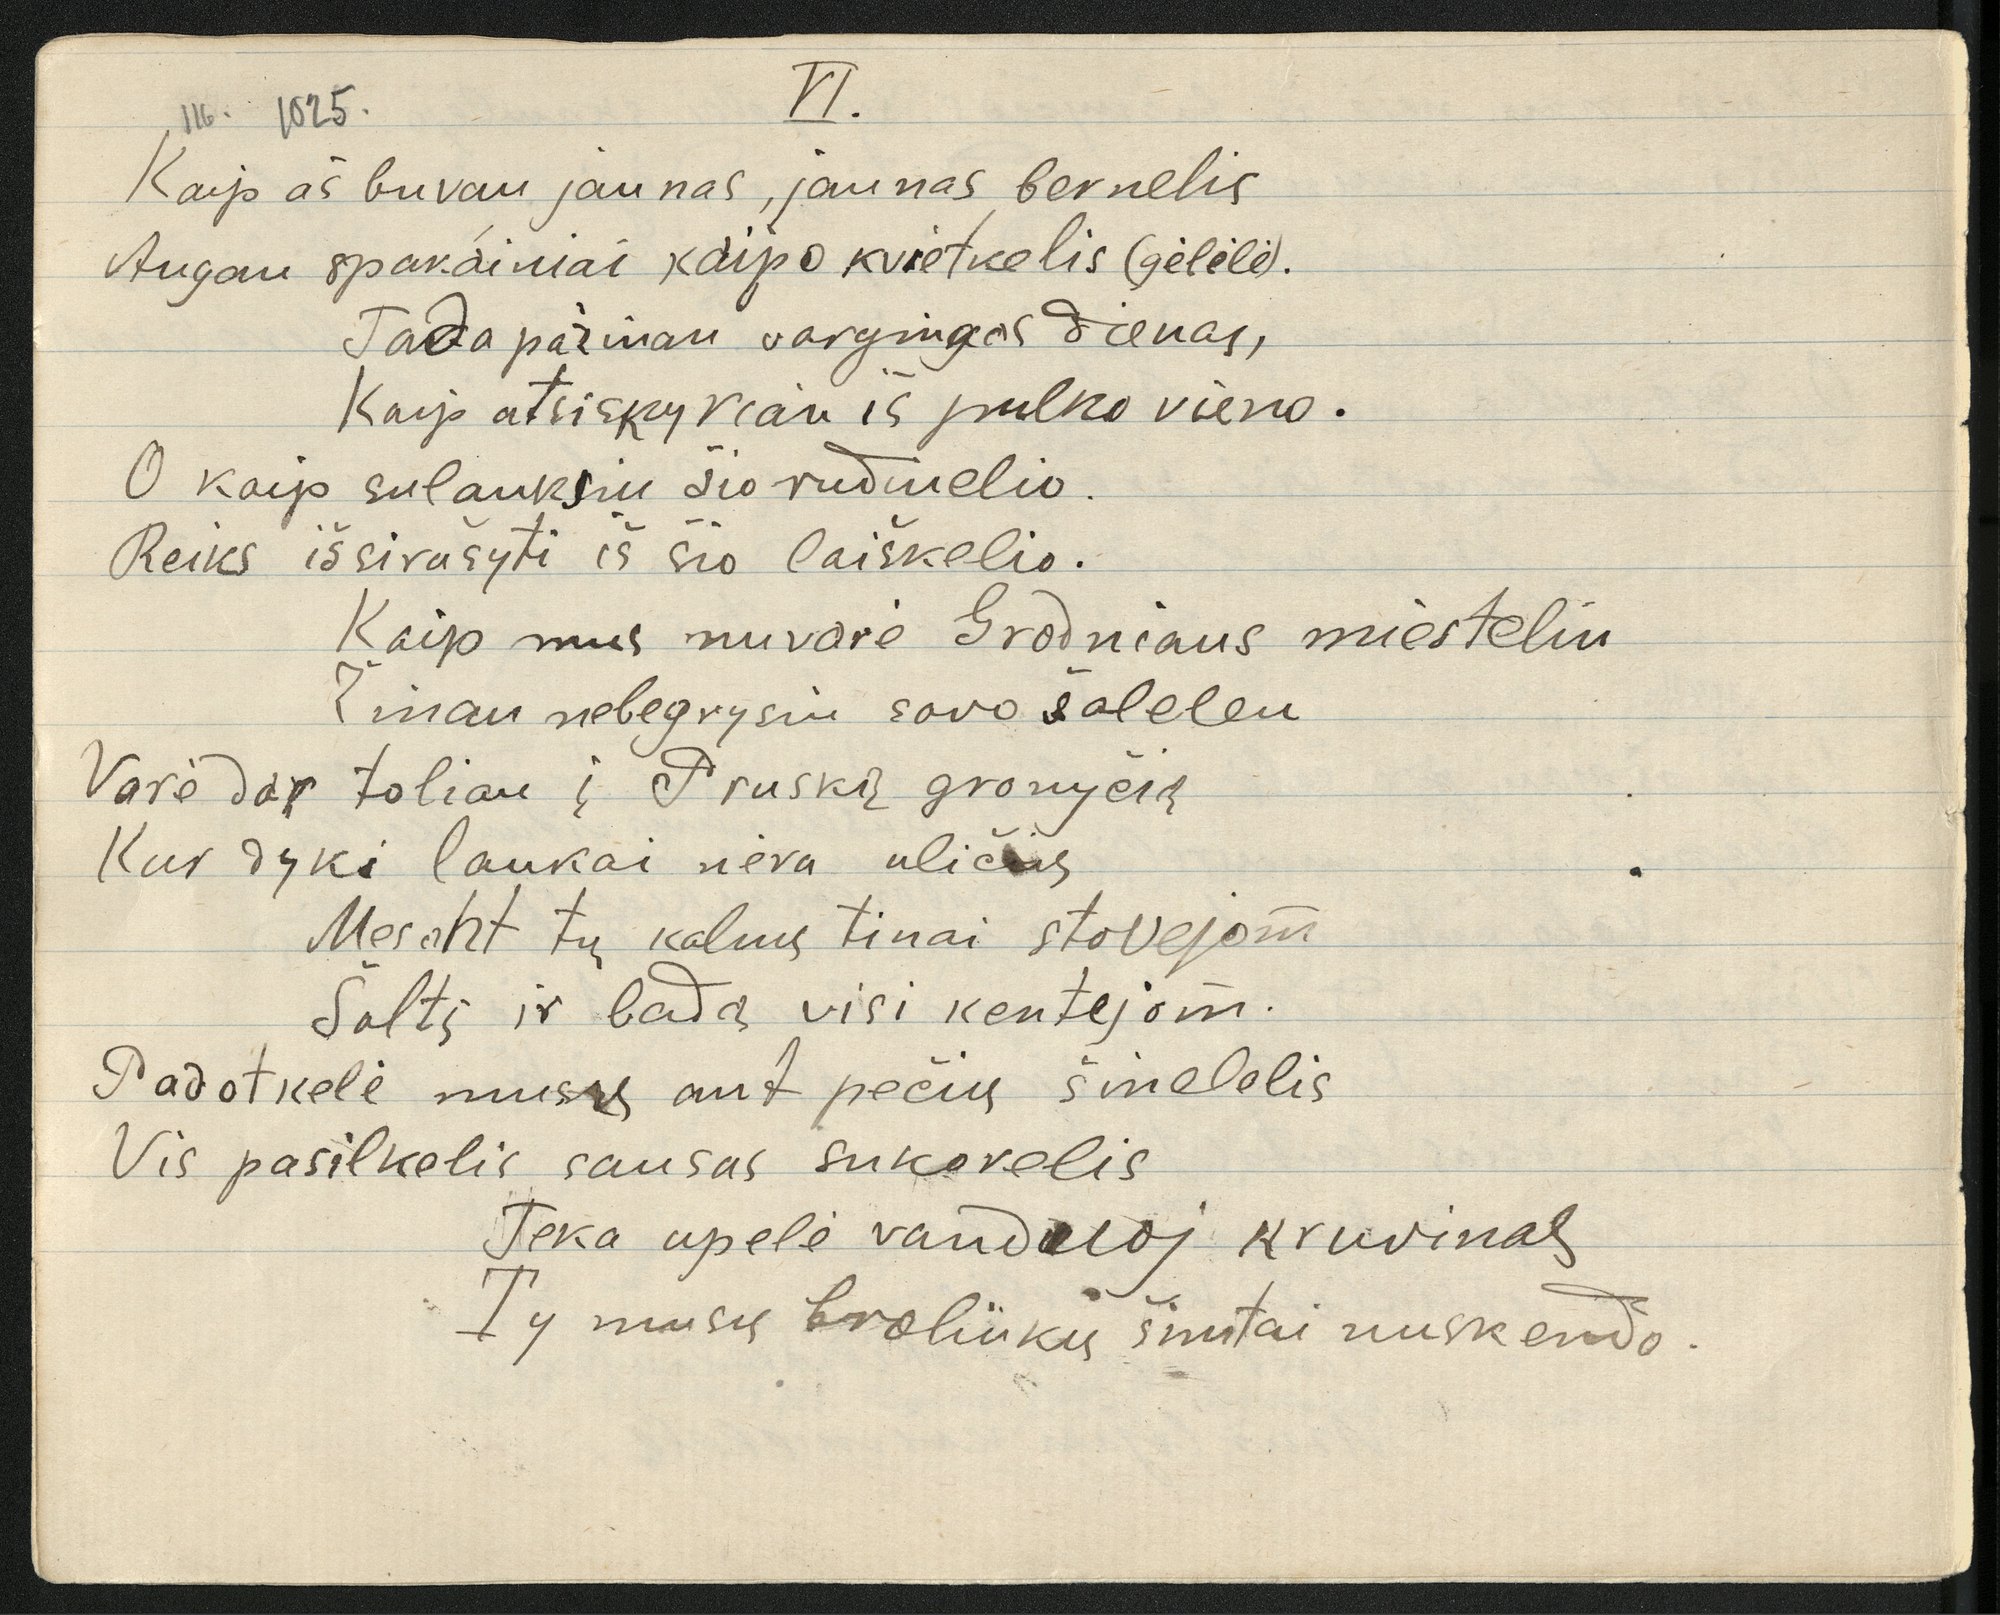 VI.
116. 1025.
Kaip aš buvau jaunas, jaunas bernelis
Augau spakainiai kaipo kvietkelis (gėlėlė).
Tada pažinau vargingas dienas,
Kaip atsiskyriau iš pulko vieno.
O kaip sulauksiu šio rudinelio.
Reiks išsirašyti iš šio laiškelio.
Kaip mus nuvarė Grodniaus miesteliu
Žinau nebegrysiu savo šalelėu
Varė dar toliau į Pruską granyčią
Kur dyki laukai nėra uličių
Mes aht tų kalnų tinai stovejom̄
Šaltį ir badą visi kentejom̄.
Padotkelė musų ant pečių šinelelis
Vis pasilkelis sausas sukorelis
Teka upelė vanduoj kruvinas
Ty musų broliukų šimtai nuskendo.